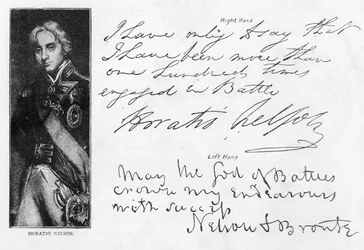 Right Hand
I have only to say that
I have been more than
one hundred times
engaged in Battle
Horatio Nelson
Left Hand
May the God of Battles
crown my Endeavours
with success
Nelson & Bronte
HORATIO NELSON.